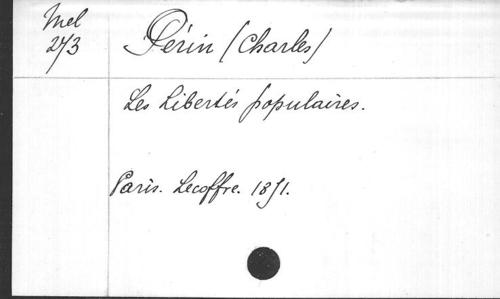 Mel
273
Périn (Charles)
Les Libertés populaires.
Paris. Lecoffre. 1871.